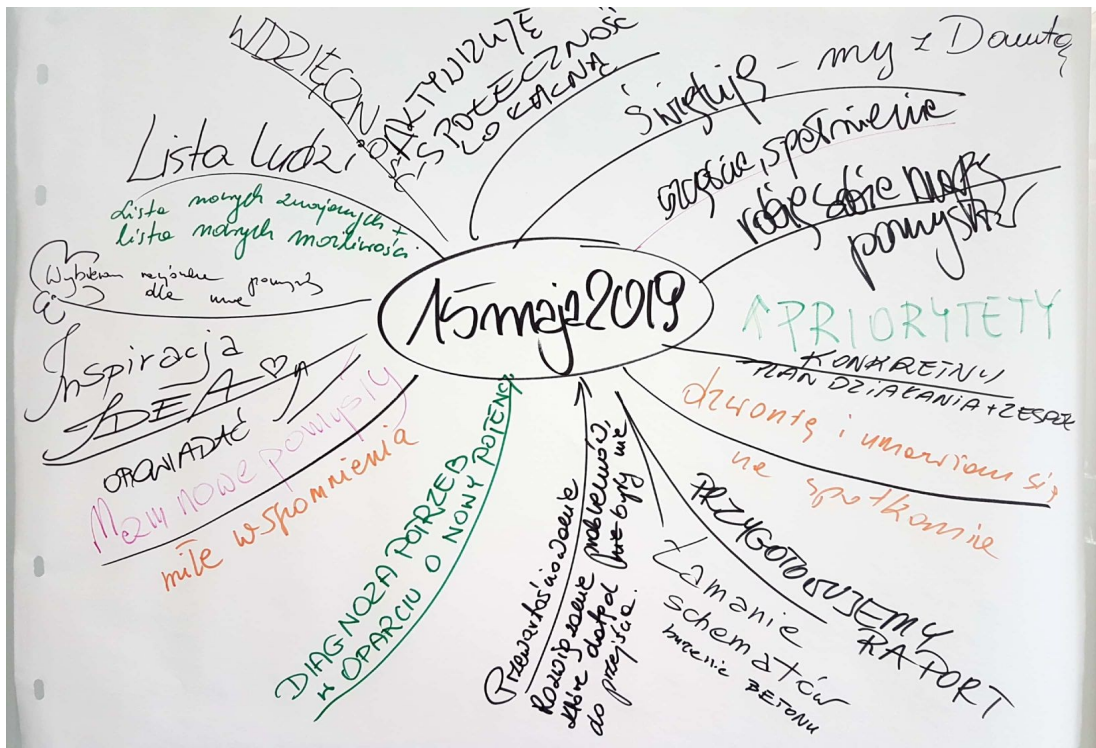 WDZIĘCZNOŚĆ
AKTYWIZUJĘ
SPOŁECZNOŚĆ
LOKALNĄ
Świętuję - my z Danutą
szczęście, spełnienie
robię sobie mapę
pomysłów
↑ PRIORYTETY
KONKRETNY
PLAN DZIAŁANIA + ZESPÓŁ
dzwonię i umawiam się
na spotkanie
PRZYGOTOWUJEMY
RAPORT
Łamanie
schematów
burzenie BETONU
Przewartościowanie
Rozwiązanie problemów,
które dotąd nie były nie
do przejścia.
DIAGNOZA POTRZEB
W OPARCIU O NOWY POTENCJ.
miłe wspomnienia
Mam nowe pomysły
OPOWIADAĆ
IDEA
Inspiracja
Wybieram najsłuszne pomysły
dla mnie
Lista nowych znajomych +
lista nowych możliwości
Lista ludzi
15 maja 2019